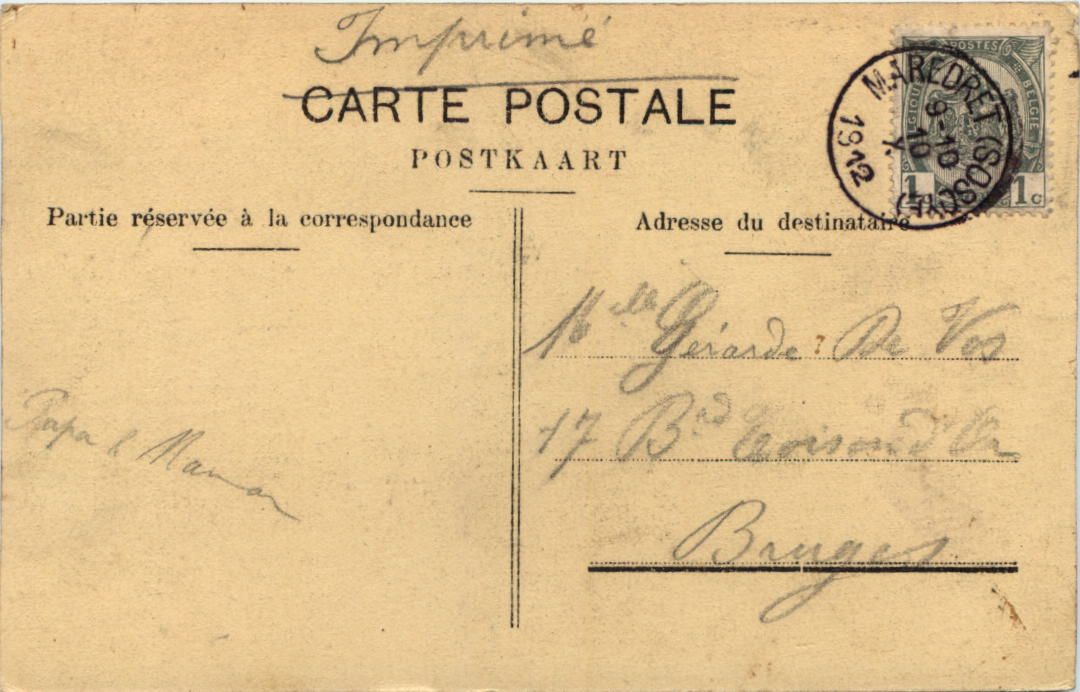 Imprimé
CARTE POSTALE
POSTKAART
POSTES
BELGIQUE BELGIË
1 1c
MAREDRET (SOSOYE)
9-10
10
X
1912
Partie réservée à la correspondance
Adresse du destinataire
Mlle Gérarde De Vos
17 Bvd Toison d'Or
Bruges
Papa & Maman